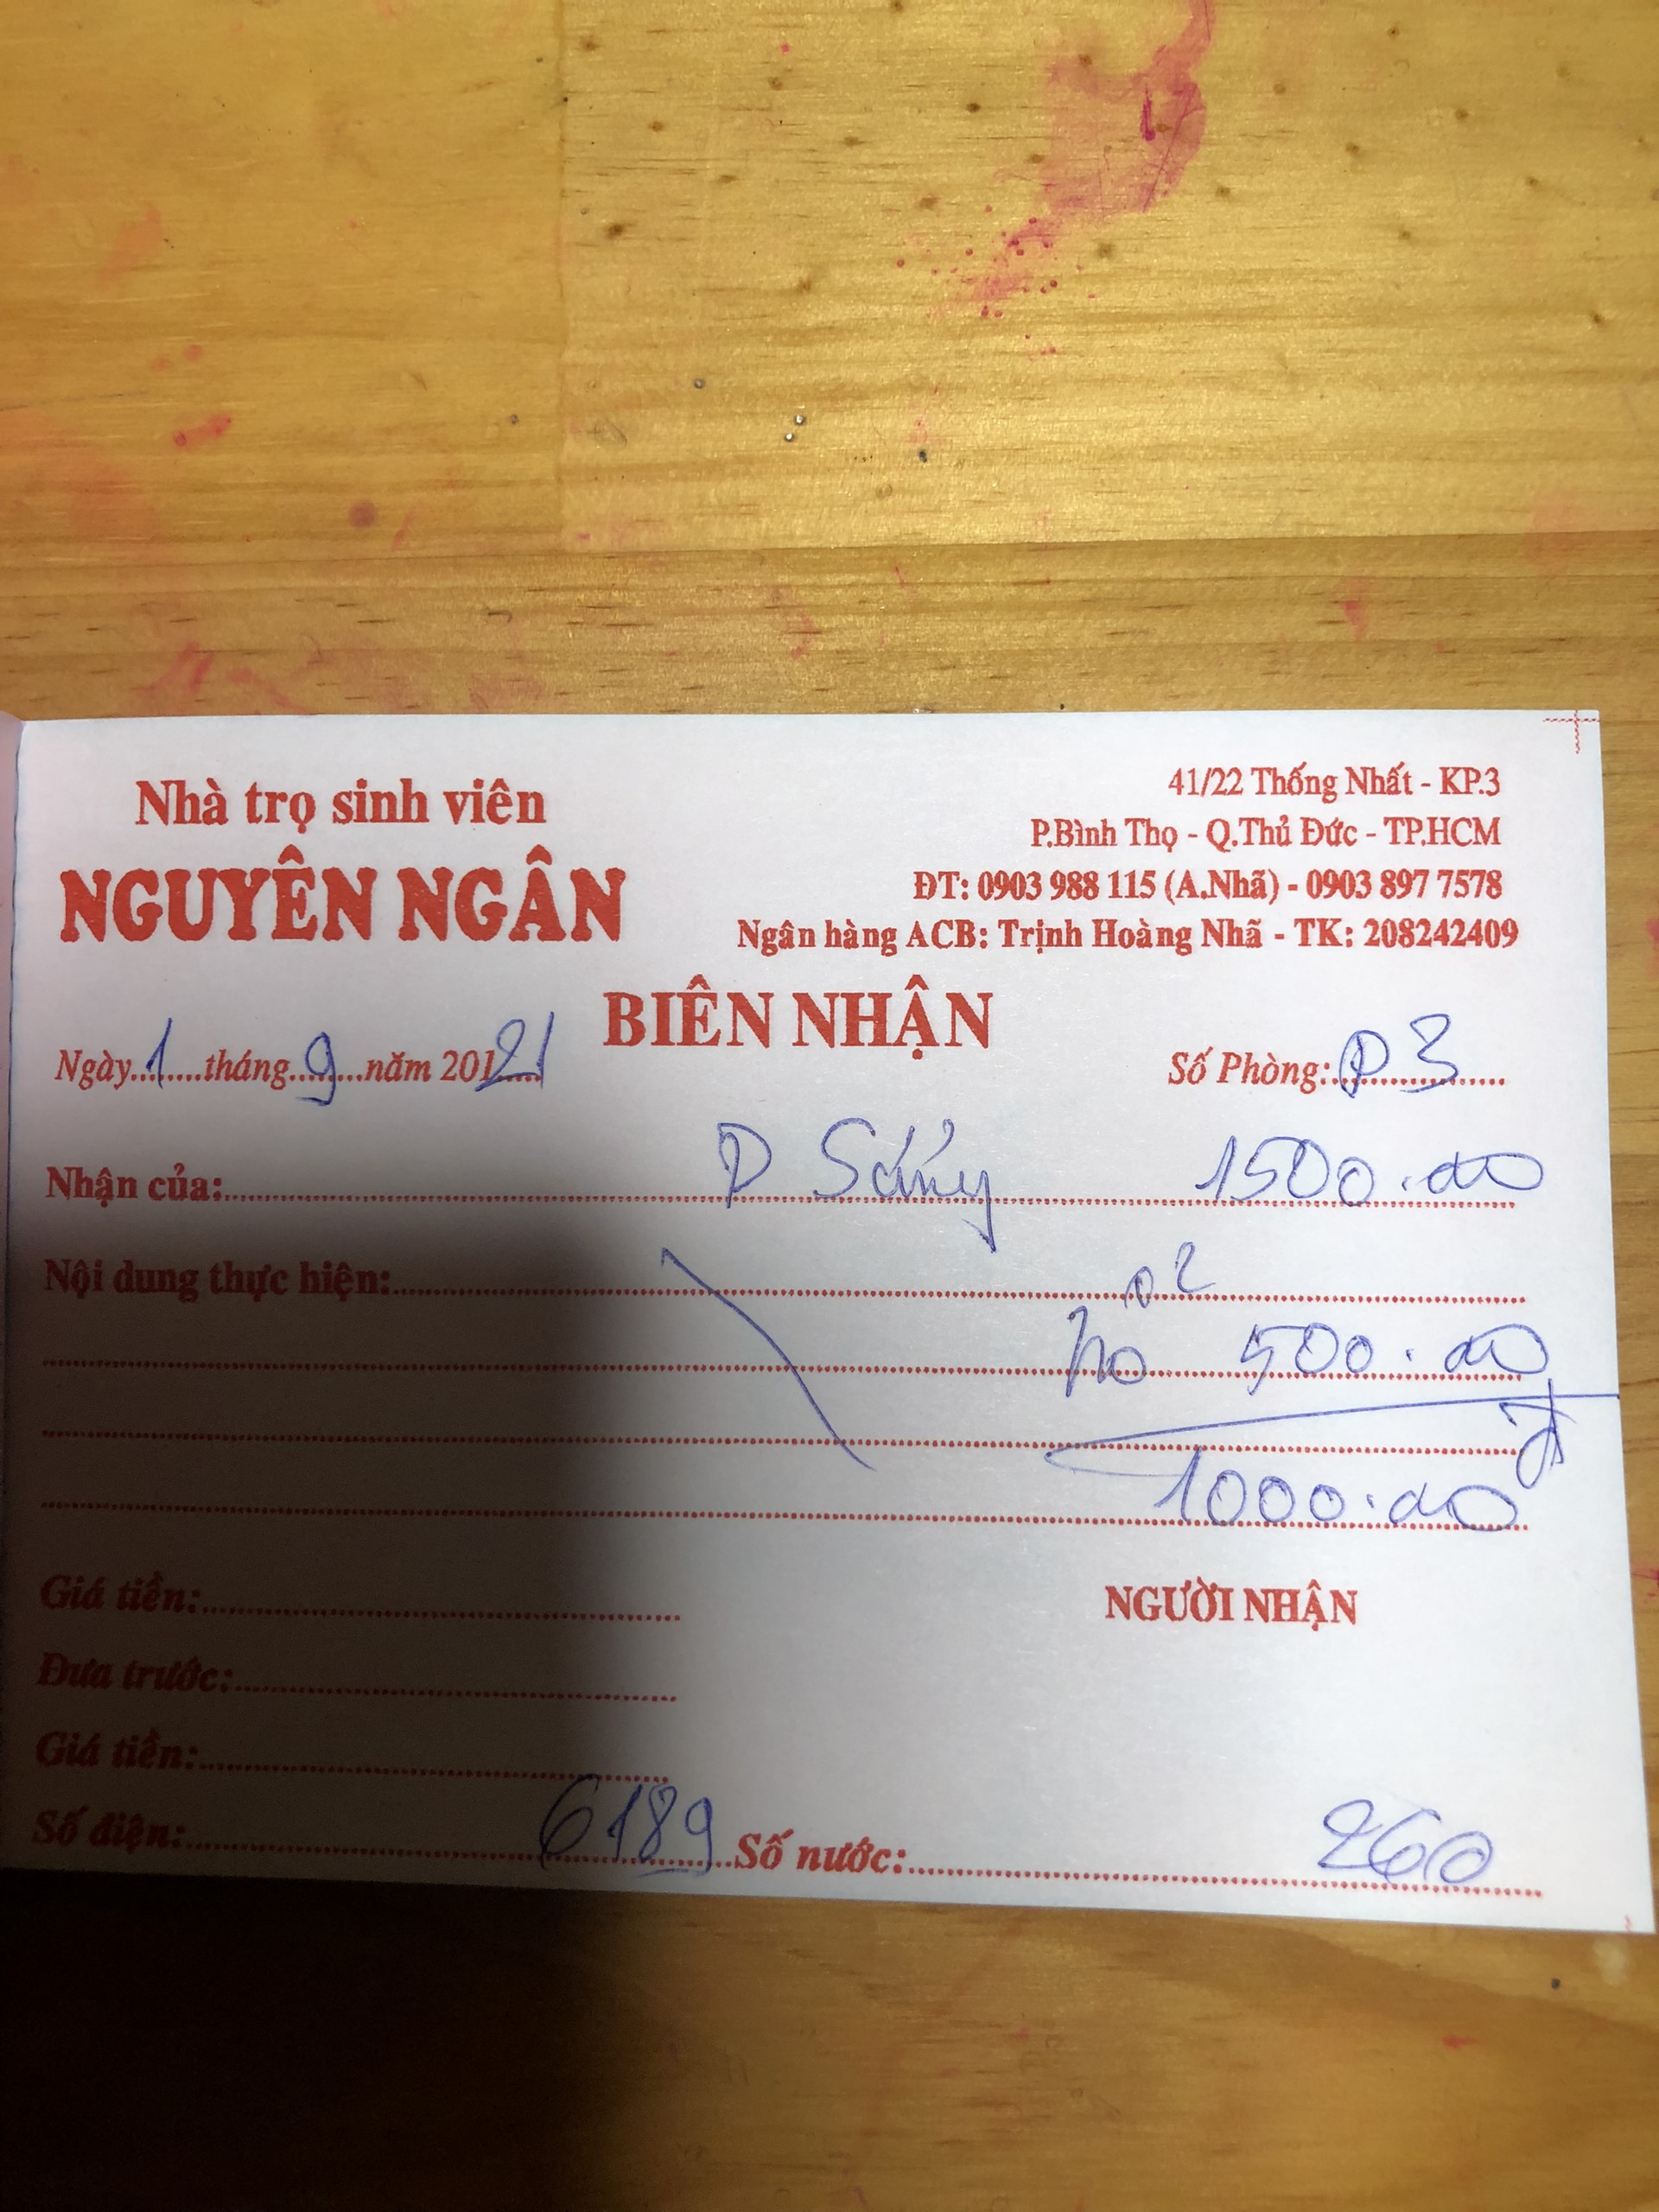 Nhà trọ sinh viên
NGUYÊN NGÂN
41/22 Thống Nhất - KP.3
P.Bình Thọ - Q.Thủ Đức - TP.HCM
ĐT: 0903 988 115 (A.Nhã) - 0903 897 7578
Ngân hàng ACB: Trịnh Hoàng Nhã - TK: 208242409
BIÊN NHẬN
Ngày 1 tháng 9 năm 201 21
Số Phòng: P 3
Nhận của: P 1500.000
Nội dung thực hiện:
500.000
1000.000 đ
Giá tiền:
NGƯỜI NHẬN
Đưa trước:
Giá tiền:
Số điện: 6189 Số nước: 260